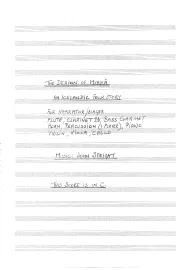 THE DEACON OF MYRKÁ
AN ICELANDIC FOLK STORY
FOR NARRATOR/SINGER
FLUTE, CLARINET Bb, BASS CLARINET
HORN, PERCUSSION (1 PLAYER), PIANO
VIOLIN, VIOLA, CELLO
MUSIC: JOHN SPEIGHT
THIS SCORE IS IN C